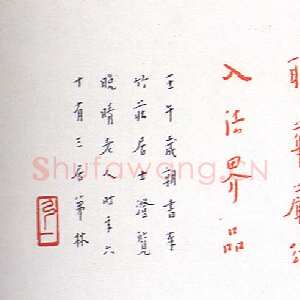 華嚴
入法界品
壬午歲朝書奉
竹莊居士澄覽
晚晴老人時年六
十有三居茀林
弘一
Shufawang.CN